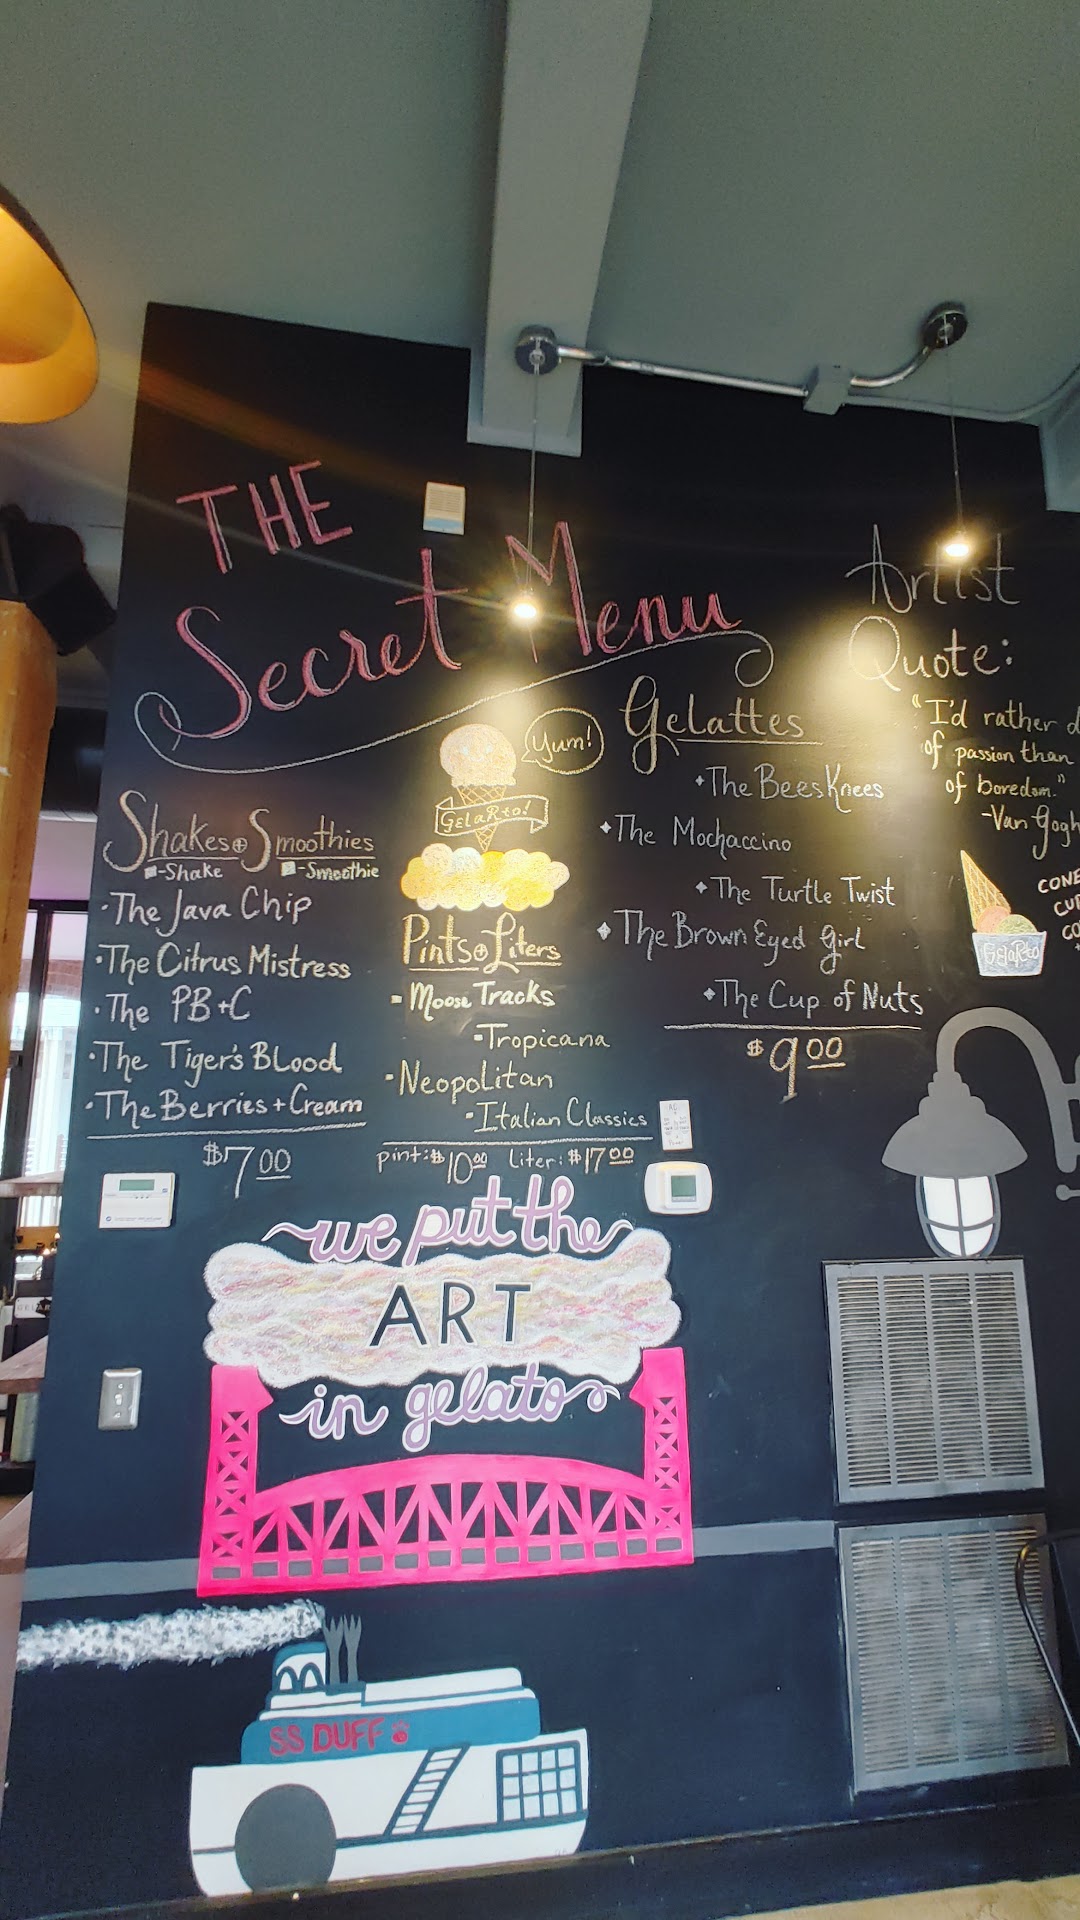 THE
Secret Menu
Yum!
GELARTO!
Shakes + Smoothies
-Shake -Smoothie
The Java Chip
The Citrus Mistress
The PB+C
The Tiger's Blood
The Berries + Cream
$7.00
Pints + Liters
- Moose Tracks
- Tropicana
- Neopolitan
- Italian Classics
pint: $10.00 liter: $17.00
Gelattes
The Bees Knees
The Mochaccino
The Turtle Twist
The Brown Eyed Girl
The Cup of Nuts
$9.00
Artist
Quote:
"I'd rather d
of passion than
of boredom."
-Van Gogh
CONE
CU
CO
GELARTO
we put the
ART
in gelato
SS DUFF